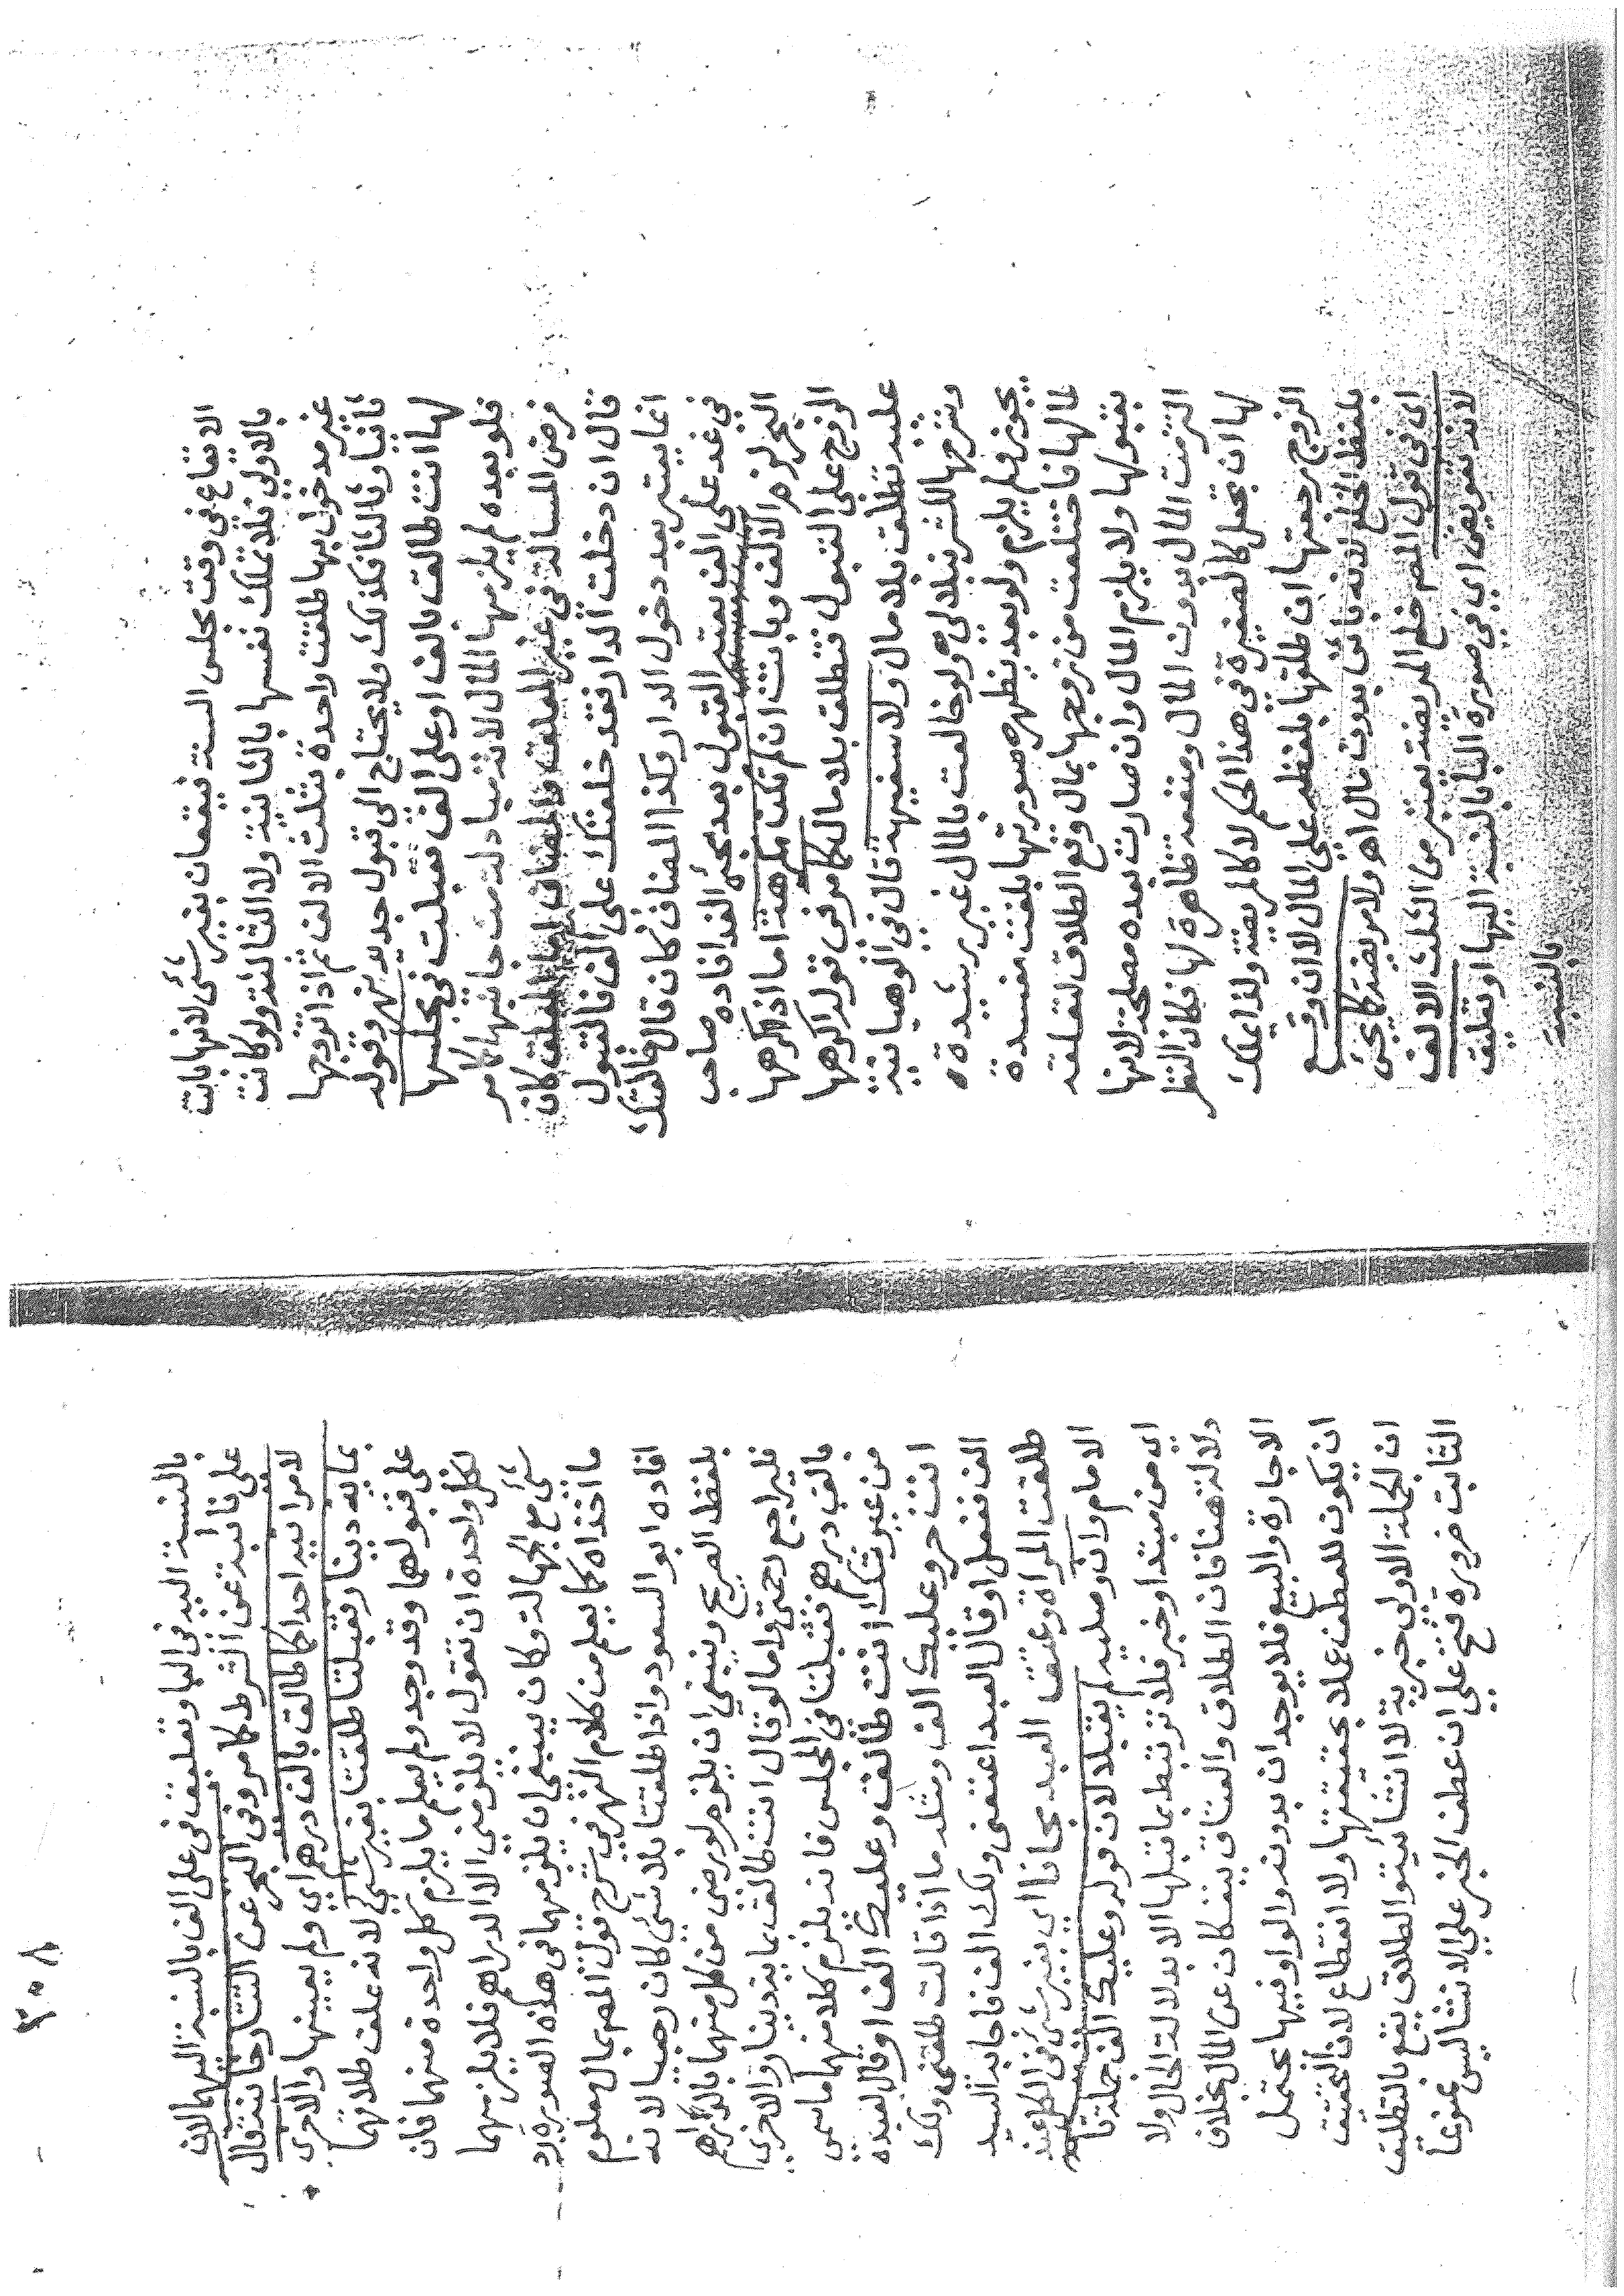 الايقاع في وقت مجلس السنة فيقعان بغير شئ لانها بانت
بالاولى فلا تملك نفسها بالثانية ولا الثالثة ولو كانت
غير مدخول بها طلقت واحدة بثلث الالف ثم اذا تزوجها
ثانيا وثالثا فكذلك ولا يحتاج الى قبول جديد نهر وقوله
لها انت طالق بالف او على الف فقبلت في مجلسها
فلو بعده لم يلزمها المال لانه مبادلة من جانبها كامر
فرض المسالة في غير المعلق والمضاف اما المعلق كان
قال ان دخلت الدار فقد خلعتك على الف فالقبول
انما يعتبر بعد دخول الدار وكذا المضاف كان قال خالعتك
في غد على الف يعتبر القبول بعد مجئ الغد افاده صاحب
البحر لزم الالف وبانت ان لم تكن مكرهة اما اذا اكرهها
الزوج على القبول تطلق بلا مال كامر في قوله اكرهها
عليه تطلق بلا مال ولا سفيهة قال في الوهبانية
وشرحها للشرنبلالي ولو خالعت بالمال غير رشيدة
يجوز ولم يلزم ولو بعد يظهر صورتها بلغت مفسدة
لمالها فاختلعت من زوجها بمال وقع الطلاق لتعلقه
بقبولها ولا يلزم المال وان صارت بعده مصلحة لانها
التزمت المال بدون المال ومنفعة ظاهرة لها فكان النظر
لها ان تجعل كالصغيرة في هذا الحكم لا كالمريضة ولذا يملك
الزوج رجعتها ان طلقها بلفظه على المال لا ان وقع
بلفظ الخلع لانه بائن بدون مال اهـ ولا مريضة كايجئ
اى في قول المصـ خلع المريضة يعتبر من الثلث الالف
لانه تعويض اى في صورة الباء بالنسبة اليها او تعليق
بالنسبة
٢٠٨
بالنسبة اليه في البا وتعليق في على الف بالنسبة اليهما لان
على نائبة عن الشرط كامر وفي البحر عن التتارخانية قال
لامراتيه احداكما طالق بالف درهم اى ولم يعينها والاخرى
بماية دينار فقبلتا طلقتا بغير شئ لانه علق طلاقهما
على قبولهما وقد وجد ولم يعلم ما يلزم كل واحدة منهما فان
لكل واحدة ان تقول لا يلزمني الا الدراهم فلا يلزمهما
شئ مع الجهالة وكان ينبغي ان يلزمهما في هذه الصورة رد
ما اخذاه كما يعلم من كلام النهر في شرح قول المصـ بمال معلوم
افاده ابو السعود واذا طلقتا بلا شئ كان رجعيا لانه
بلفظ الصريح وينبغي ان يلزم لو رضي من كل منهما بالدراهم
فليراجع رحمتى واما لو قال انت طالق بماية دينار والاخرى
بالف درهم فقبلتا في المجلس فانه يلزم كلا منهما ما سمى
من غير شك انت طالق وعليك الف او قال لعبده
انت حر وعليك الف ومثله ما اذا قالت طلقني ولك
الف ففعل او قال العبد اعتقني ولك الف فاجابه السيد
طلقت المراة وعتق العبد مجانا اى بغير شئ في الكل عند
الامام وان وصليه لم يقبلا لان قوله وعليك الف جملة تامة
اى من مبتدا وخبر فلا ترتبط بما قبلها الا بدلالة الحال ولا
دلالة هنا فان الطلاق والعتاق ينفكان عن المال بخلاف
الاجارة والبيع فلا يوجدان بدونه والواو فيها يحتمل
ان يكون للعطف عملا بحقيقتها ولا انقطاع لان التحقيق
ان الجملة الاولى خبرية لا انشائية والطلاق يقع بالتطليق
الثابت ضرورة فتح على ان عطف الخبر على الانشا ليس ممنوعا